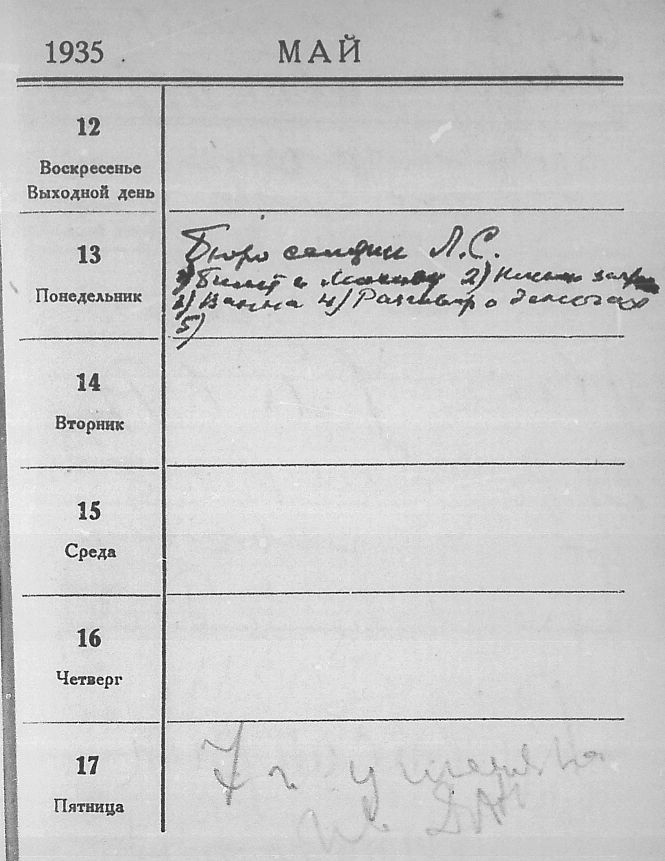 1935 МАЙ
12
Воскресенье
Выходной день
13
Понедельник
Бюро секции Л.С.
1) Билет в Москву 2)
3) Ванна 4) Разговор о
5)
14
Вторник
15
Среда
16
Четверг
17
Пятница
7 ч у